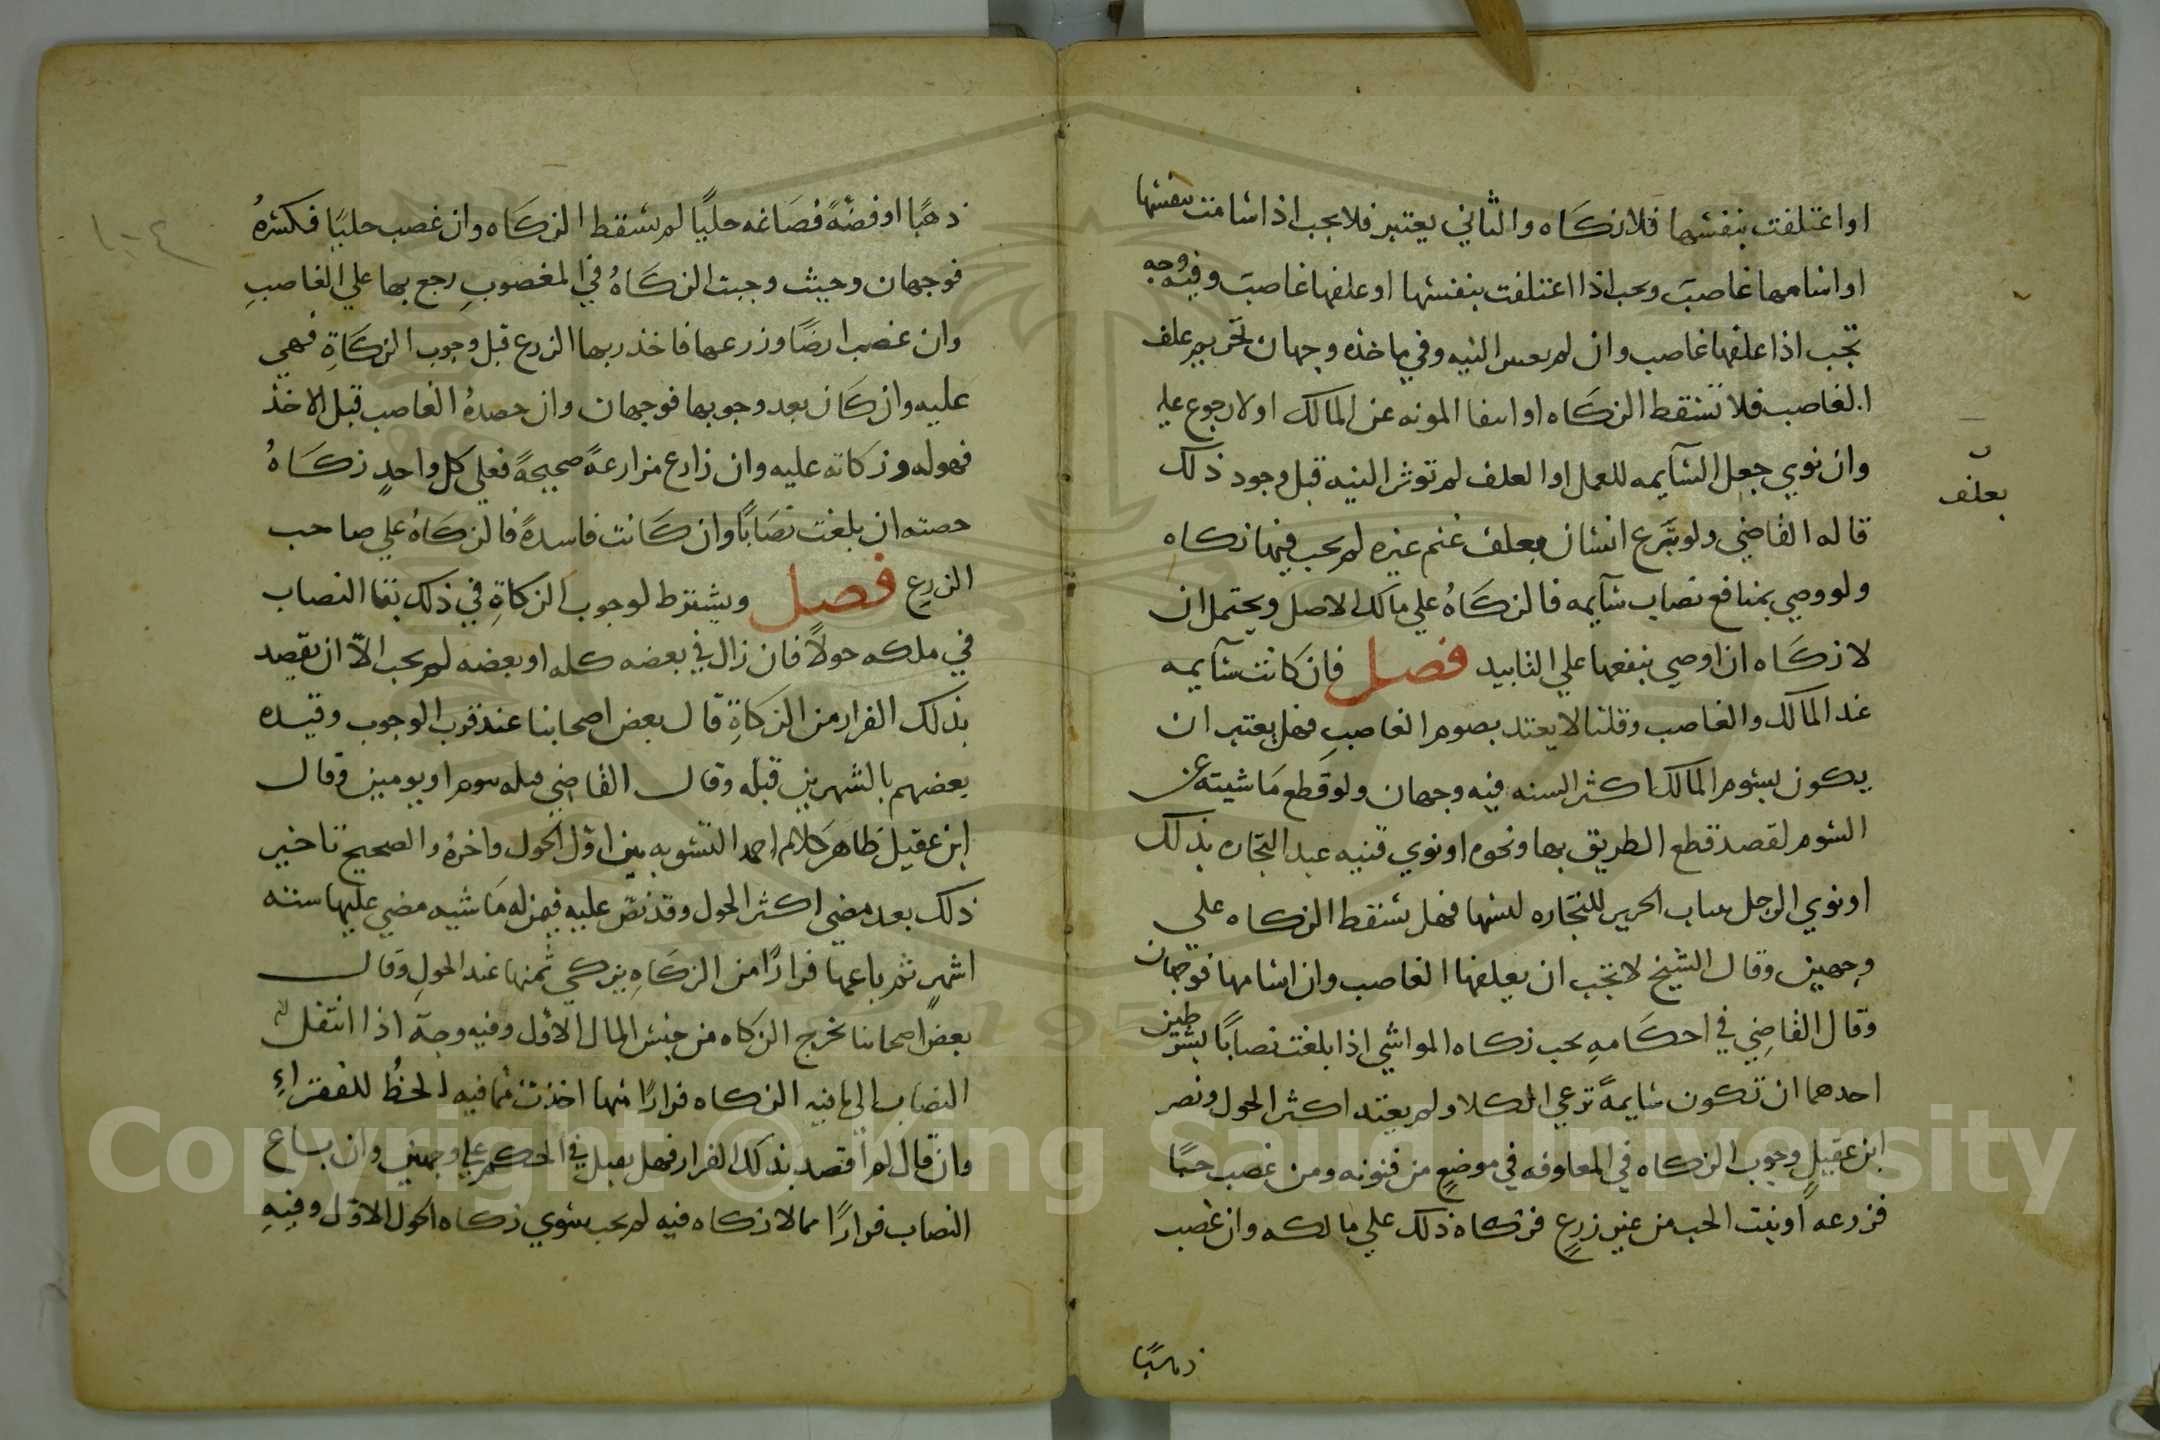 او اعتلفت بنفسها فلا زكاه والثاني يعتبر فلا يجب اذا سامت بنفسها
او اسامها غاصب ويجب اذا اعتلفت بنفسها او علفها غاصب وفيه وجه
تجب اذا علفها غاصب وان لم النيه وفي ماخذه وجهان تحريم علف
الغاصب فلا تسقط الزكاه او انتفا المونه عن المالك اولا رجوع عليه
وان نوي جعل السآيمه للعمل او العلف لم توثر النيه قبل وجود ذلك
قاله القاضي ولو تبرع انسان بعلف غنم غيره لم يجب فيها زكاه
بعلف
ولو وصي بمنافع نصاب سآيمه فالزكاهُ علي مالك الاصل ويحتمل ان
لا زكاه ان اوصي بنفعها علي التابيد فصل فان كانت سآيمه
عند المالك والغاصب وقلنا لا يعتد بصوم الغاصب فهل يعتبر ان
يكون لسوم المالك اكثر السنه فيه وجهان ولو قطع ماشيته عن
السوم لقصد قطع الطريق بها ونحوه او نوي قنيه عبد التجاره بذلك
او نوي الرجل ثياب الحرير للتجاره لبسها فهل تسقط الزكاه علي
وجهين وقال الشيخ لا تجب ان يعلفها الغاصب وان اسامها فوجهان
وقال القاضي في احكامه يجب زكاه المواشي اذا بلغت نصابًا بشرطين
احدهما ان تكون سايمةً ترعي الكلا ولم يعتد اكثر الحول ونصر
ابن عقيل وجوب الزكاه في المعلوفه في موضعٍ من فنونه ومن غصب حبًا
فزرعه او نبت الحب من غير زرعٍ فزكاه ذلك علي مالكه وان غصب
ذهبًا
ذهبًا او فضةً فصاغه حليًا لم تسقط الزكاه وان غصب حليًا فكسرهُ
فوجهان وحيث وجبت الزكاهُ في المغصوبِ رجع بها علي الغاصبِ
وان غصب ارضًا وزرعها فاخذ ربها الزرع قبل وجوب الزكاةِ فهي
عليه وان كان بعد وجوبها فوجهان وان حصدهُ الغاصب قبل الاخذ
فهو له وزكاته عليه وان زارع مزارعةً صحيحةً فعلي كل واحدٍ زكاهُ
حصته ان بلغت نصابًا وان كانت فاسدةً فالزكاهُ علي صاحب
الزرع فصل ويشترط لوجوب الزكاةِ في ذلك بقا النصاب
في ملكه حولًا فان زال في بعضه كله او بعضه لم يجب الّا ان يقصد
بذلك الفرار من الزكاةِ قال بعض اصحابنا عند قرب الوجوب وقيده
بعضهم بالشهرين قبله وقال القاضي قبله بيوم او يومين وقال
ابن عقيل ظاهر كلام احمد التسويه بين اوّل الحول واخرهُ والصحيح تاخير
ذلك بعد مضي اكثر الحول وقد نصّ عليه فيمن له ماشيه مضي عليها ستة
اشهرٍ ثم باعها فرارًا من الزكاهِ يزكي ثمنها عند الحولِ وقال
بعض اصحابنا يخرج الزكاه من جنس المال الاوّل وفيه وجهٌ اذا انتقل
النصاب الي ما فيه الزكاه فرارًا منها اخذت مما فيه الحظُ للفقراءِ
وان قال لم اقصد بذلك الفرار فهل يقبل في الحكم علي وجهين وان باع
النصاب فرارًا مما لا زكاه فيه لم يجب سوي زكاه الحول الاوّل وفيهِ
Copyright © King Saud University
1957